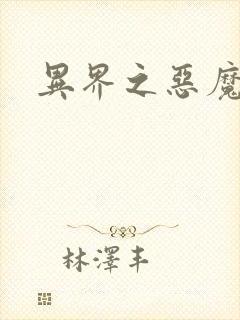 異界之惡魔
林澤丰